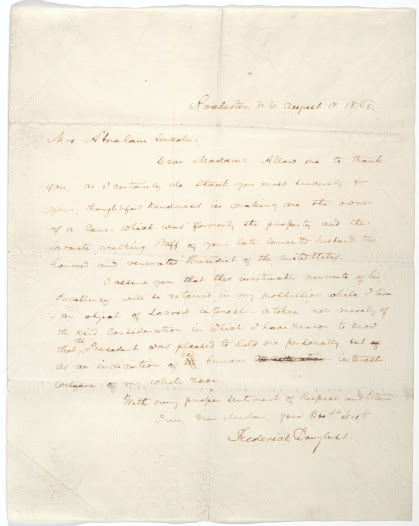 Rochester. N. Y. August 17. 1865.
Mrs Abraham Lincoln:
Dear Madam: Allow me to thank
you, as I certainly do thank you most sincerely for
your thoughtful kindness in making me the owner
of a Cane which was formerly the property and the
favorite walking staff of your late lamented husband the
honored and venerated President of the United States.
I assure you, that this inestimable memento of his
Excellency will be retained in my possession while I live
an object of sacred interest a token not merely of
the kind Consideration in which I have reason to know
that the President was pleased to hold me personally but
as an indication of his humane interest
welfare of my whole race.
With every proper sentiment of Respect and Esteem
I am, Dear Madam, your Obt
Frederick Douglass.